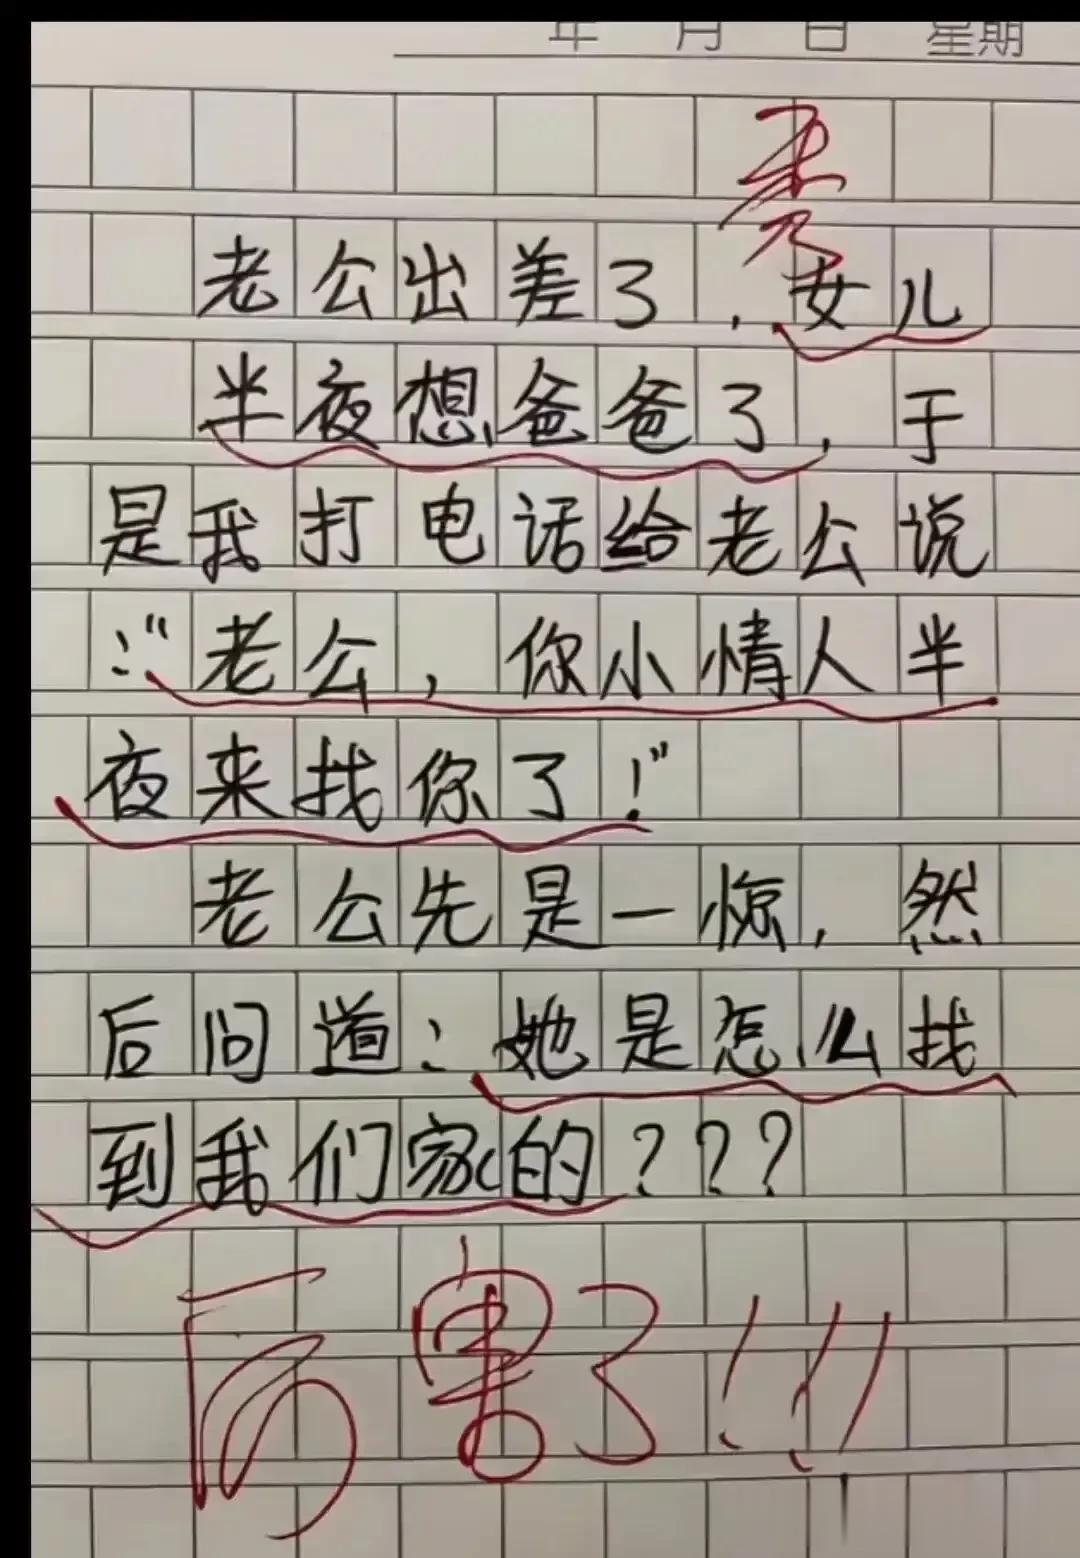 年 月 日 星期
秀
老公出差了，女儿
半夜想爸爸了，于
是我打电话给老公说
：“老公，你小情人半
夜来找你了！”
老公先是一惊，然
后问道：她是怎么找
到我们家的？？？
厉害了！！！